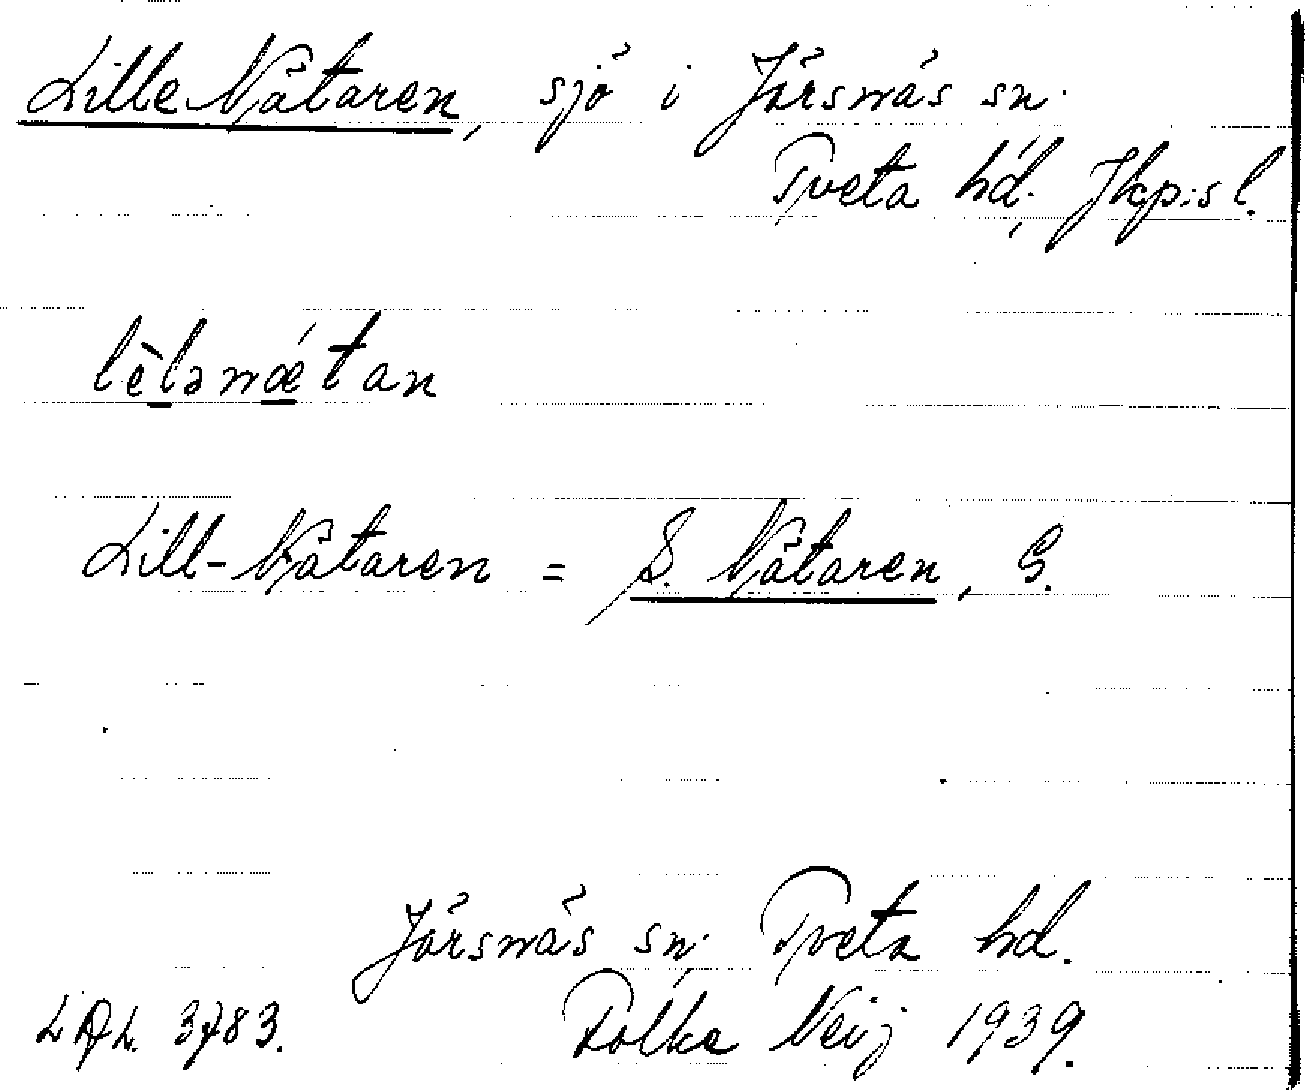 Lille Nätaren, sjö i Järsnäs sn.
Tveta hd. Jkp:s l.
lèlənǽtan
Lill-Nätaren = S. Nätaren, G.
Järsnäs sn. Tveta hd.
3783. Folke Neij 1939.